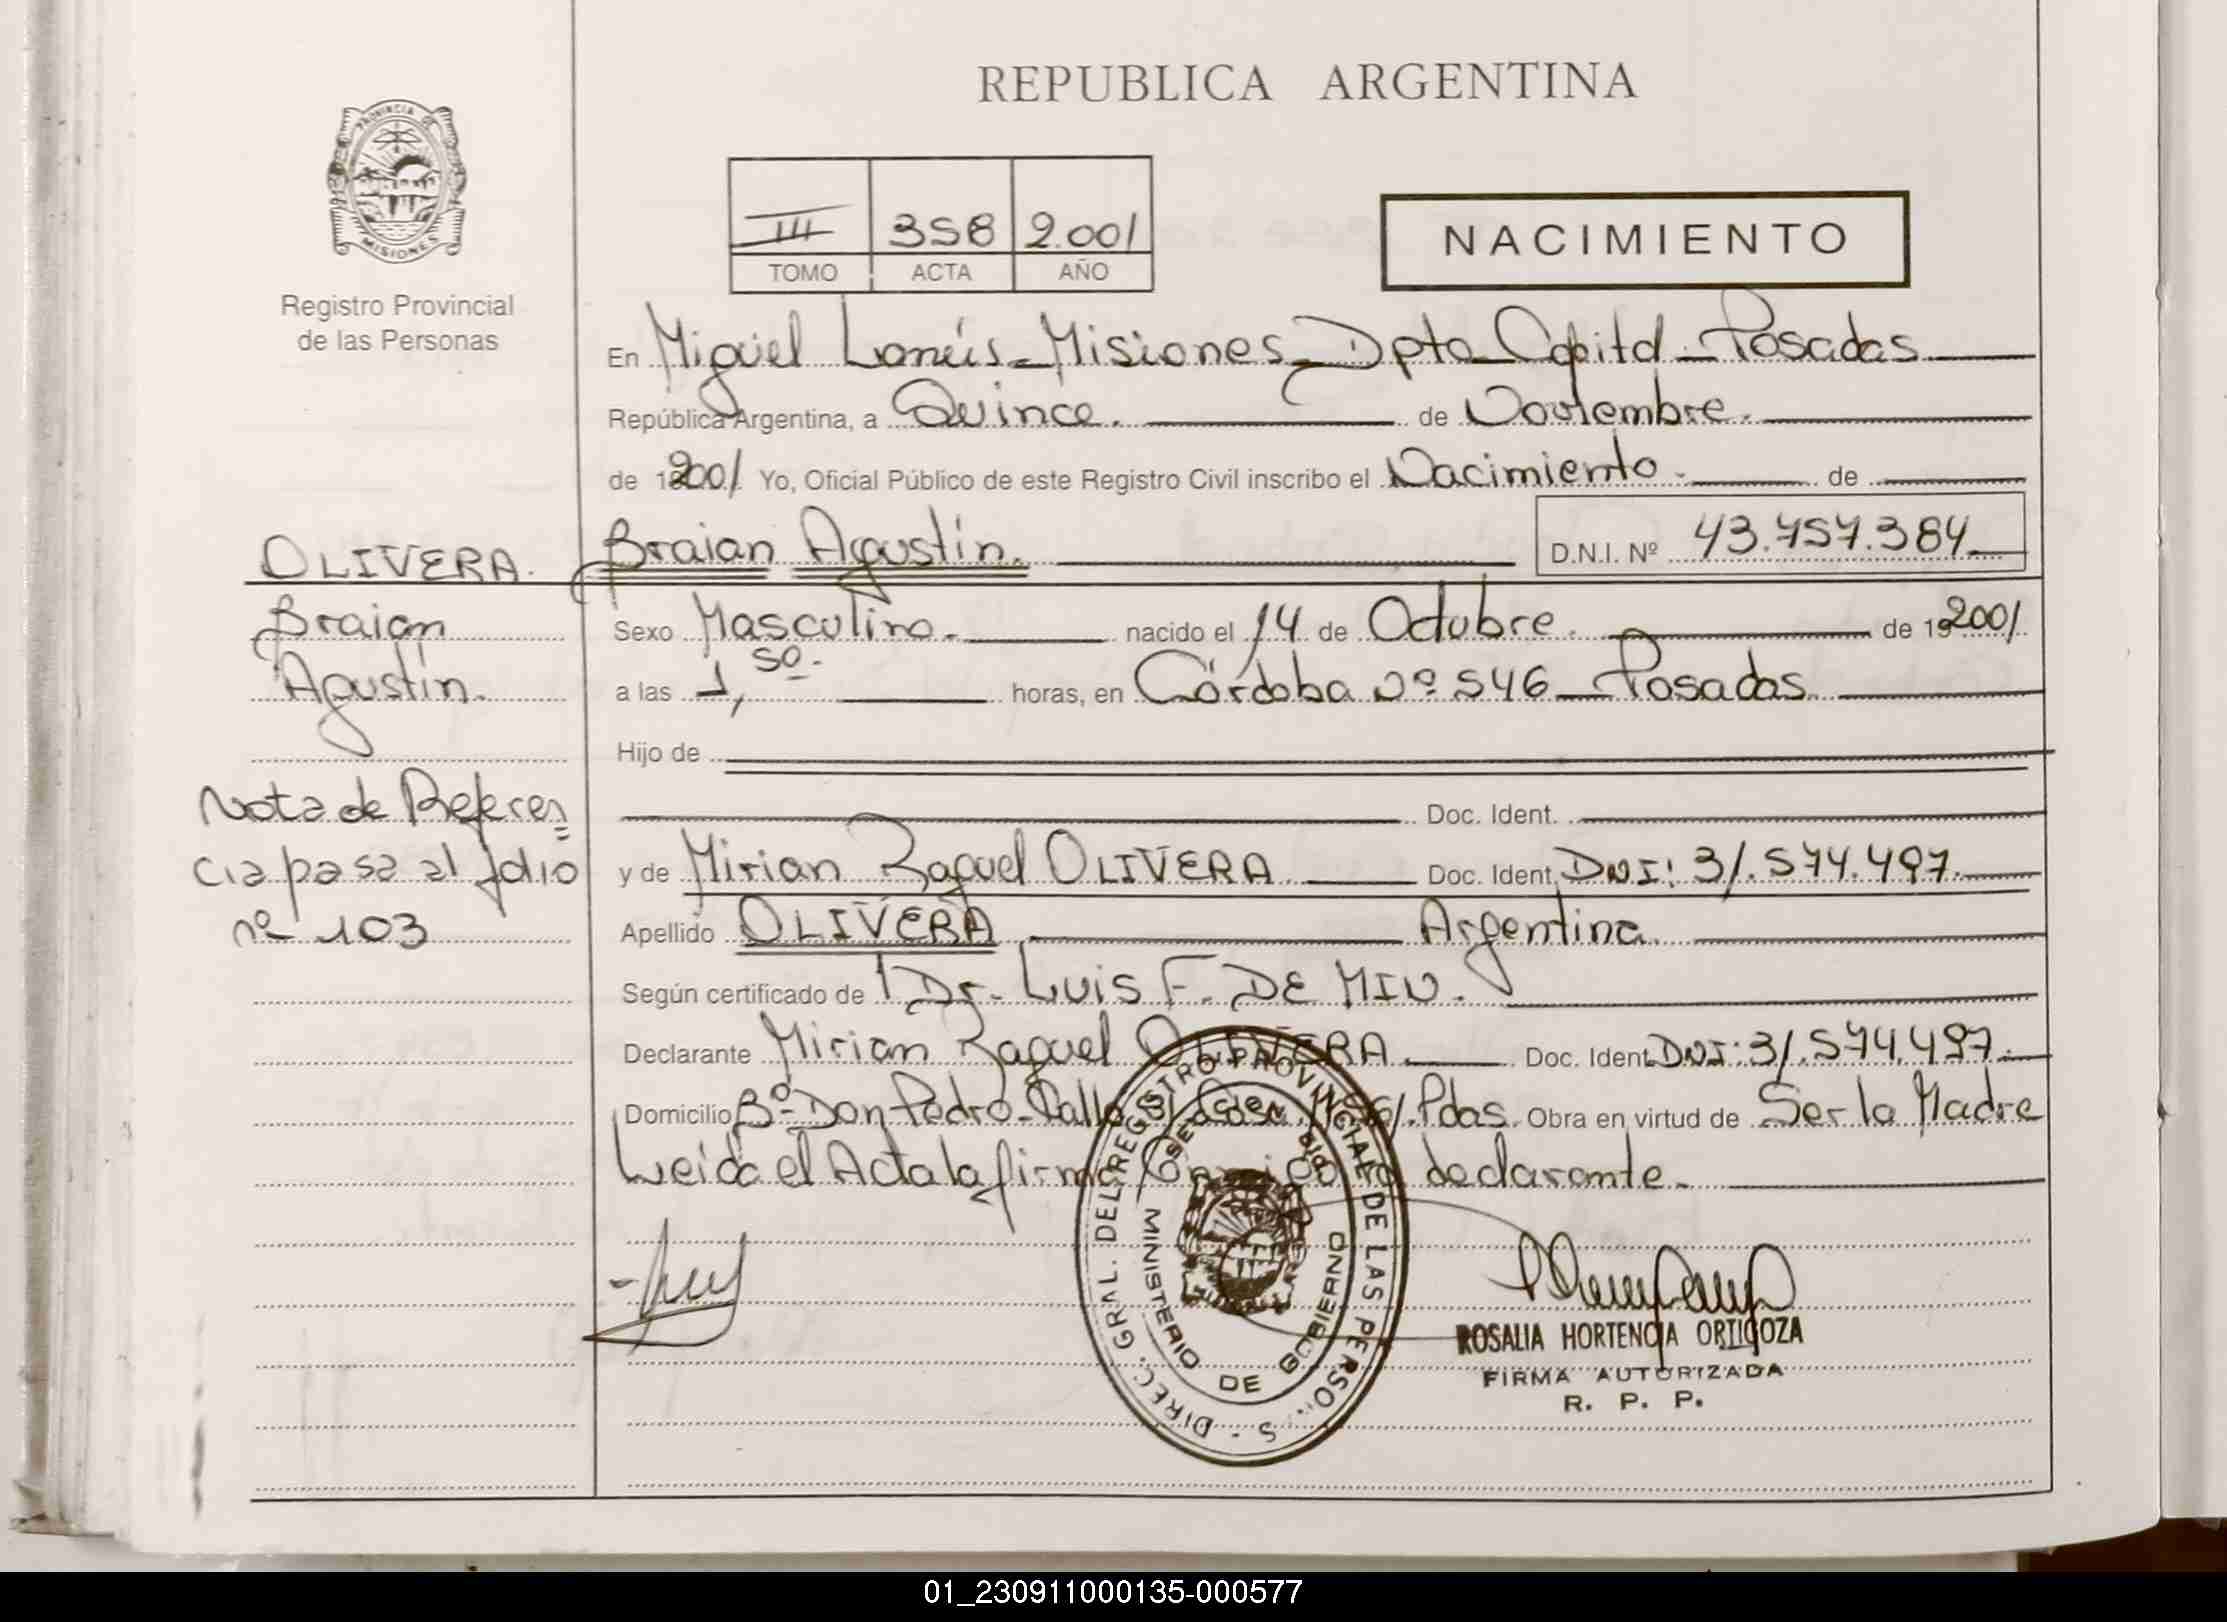 REPUBLICA ARGENTINA
PROVINCIA DE
MISIONES
Registro Provincial
de las Personas
III 358 2.001
TOMO ACTA AÑO
NACIMIENTO
En Miguel Lanús - Misiones - Dpto Capital - Posadas
República Argentina, a Quince. de Noviembre.
de 2001 Yo, Oficial Público de este Registro Civil inscribo el Nacimiento. de
OLIVERA. Braian Agustín. D.N.I. Nº 43.757.384
Braian
Agustín.
Sexo Masculino. nacido el 14 de Octubre. de 2001.
a las 1,50. horas, en Córdoba Nº 546 - Posadas.
Hijo de
Doc. Ident.
Nota de Referen
cia pasa al folio
nº 103
y de Mirian Raquel OLIVERA Doc. Ident. DNI: 31.574.497.
Apellido OLIVERA Argentina.
Según certificado de Dr. Luis F. DE MIN.
Declarante Mirian Raquel OLIVERA. Doc. Ident. DNI: 31.574.497.
Domicilio Bº Don Pedro - Calle Casa Pdas. Obra en virtud de Ser la Madre
Leida el Acta la firma declarante.
DIREC. GRAL. DEL REGISTRO PROVINCIAL DE LAS PERSONAS
MINISTERIO DE GOBIERNO
ROSALIA HORTENCIA ORTIGOZA
FIRMA AUTORIZADA
R. P. P.
01_230911000135-000577